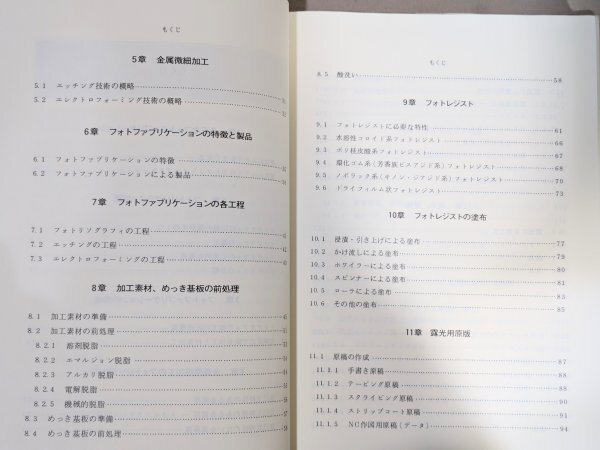 もくじ
5章 金属微細加工
5.1 エッチング技術の概略
5.2 エレクトロフォーミング技術の概略
6章 フォトファブリケーションの特徴と製品
6.1 フォトファブリケーションの特徴
6.2 フォトファブリケーションによる製品
7章 フォトファブリケーションの各工程
7.1 フォトリソグラフィの工程
7.2 エッチングの工程
7.3 エレクトロフォーミングの工程
8章 加工素材、めっき基板の前処理
8.1 加工素材の準備
8.2 加工素材の前処理
8.2.1 溶剤脱脂
8.2.2 エマルジョン脱脂
8.2.3 アルカリ脱脂
8.2.4 電解脱脂
8.2.5 機械的脱脂
8.3 めっき基板の準備
8.4 めっき基板の前処理
もくじ
8.5 酸洗い 58
9章 フォトレジスト
9.1 フォトレジストに必要な特性 61
9.2 水溶性コロイド系フォトレジスト 66
9.3 ポリ桂皮酸系フォトレジスト 67
9.4 環化ゴム系(芳香族ビスアジド系)フォトレジスト 68
9.5 ノボラック系(キノン・ジアジド系)フォトレジスト 70
9.6 ドライフィルム状フォトレジスト 73
10章 フォトレジストの塗布
10.1 浸漬・引き上げによる塗布 77
10.2 かけ流しによる塗布 79
10.3 ホワイラーによる塗布 80
10.4 スピンナーによる塗布 81
10.5 ローラによる塗布 82
10.6 その他の塗布 85
11章 露光用原版
11.1 原稿の作成 87
11.1.1 手書き原稿 88
11.1.2 テーピング原稿 88
11.1.3 スクライビング原稿
11.1.4 ストリップコート原稿
11.1.5 NC作図用原稿(データ) 94